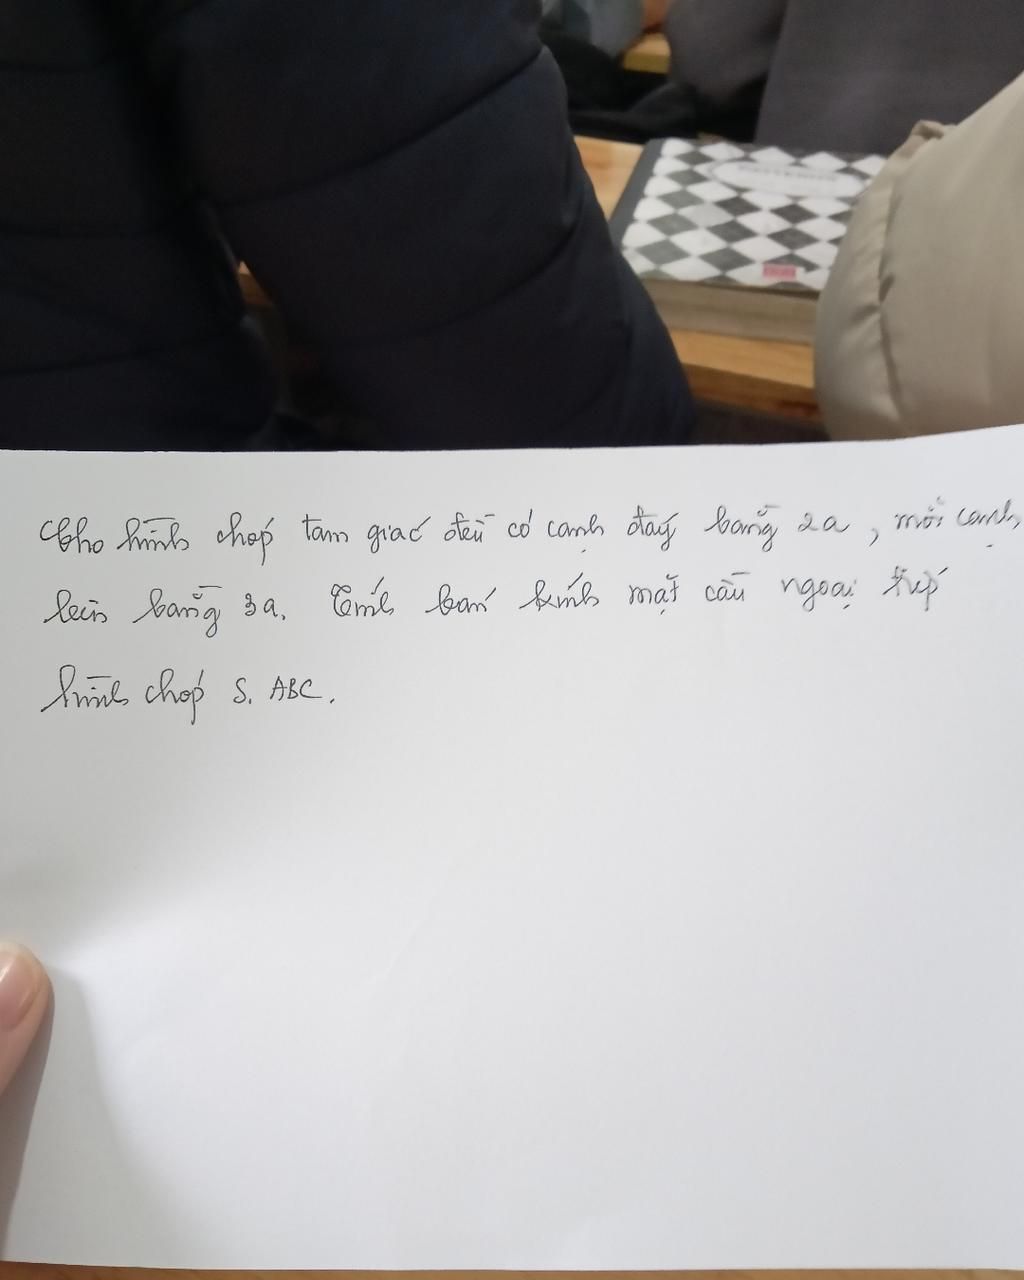 Cho hình chóp tam giác đều có cạnh đáy bằng 2a, mỗi cạnh
bên bằng 3a. Tính bán kính mặt cầu ngoại tiếp
hình chóp S.ABC.